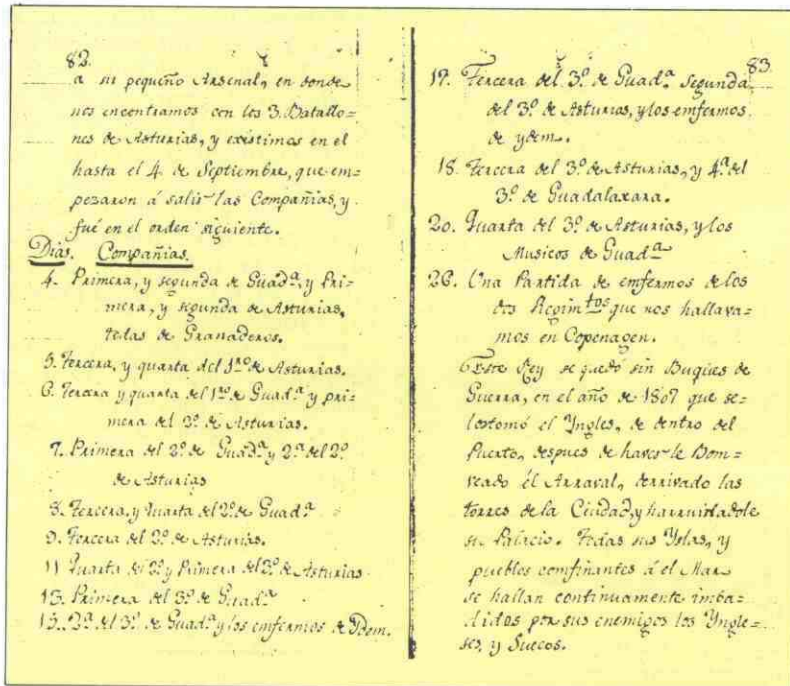 82.
a su pequeño Arsenal, en donde
nos encontramos con los 3. Batallo=
nes de Asturias, y existimos en el
hasta el 4. de Septiembre, que em=
pezaron á salir las Compañias, y
fué en el orden siguiente.
Dias. Compañias.
4. Primera, y segunda de Guad.ª, y Pri=
mera, y segunda de Asturias,
todas de Granaderos.
5. Tercera, y quarta del 1.ro de Asturias.
6. Tercera y quarta del 1.ro de Guad.ª y pri=
mera del 2.º de Asturias.
7. Primera del 2.º de Guad.ª y 2.ª del 2.º
de Asturias
8. Tercera, y Quarta del 2.º de Guad.ª
9. Tercera del 2.º de Asturias.
11 Quarta del 2.º y Primera del 3.º de Asturias.
13. Primera del 3.º de Guad.ª
15. 2.ª del 3.º de Guad.ª y los emfermos de Ydem.
83
17. Tercera del 3.º de Guad.ª Segunda
del 3.º de Asturias, y los emfermos
de ydem.
18. Tercera del 3.º de Asturias, y 4.ª del
3.º de Guadalaxara.
20. Quarta del 3.º de Asturias, y los
Musicos de Guad.ª
26. Una Partida de emfermos de los
dos Regim.tos que nos hallava=
mos en Copenagen.
Este Rey se quedó sin Buques de
Guerra, en el año de 1807 que se=
los tomó el Yngles, de dentro del
Puerto, despues de haver le Bom=
veado él Arraval, derrivado las
torres de la Ciudad, y harruinladole
su Palacio. Todas sus Yslas, y
pueblos comfinantes á el Mar
se hallan continuamente imba=
didos por sus enemigos los Yngle=
ses, y Suecos.